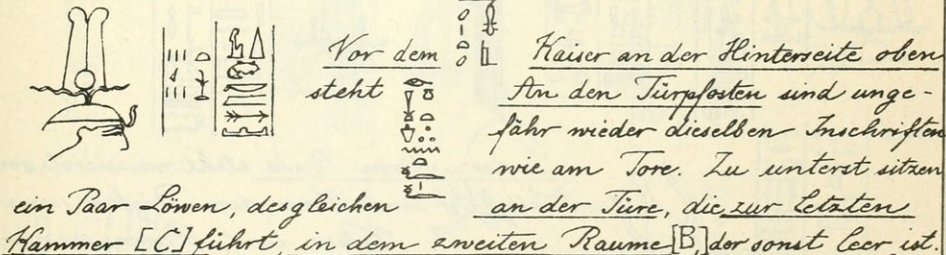 Vor dem Kaiser an der Hinterseite oben
steht An den Türpfosten sind unge-
fähr wieder dieselben Inschriften
wie am Tore. Zu unterst sitzen
ein Paar Löwen, desgleichen an der Türe, die zur letzten
Kammer [C] führt, in dem zweiten Raume [B], der sonst leer ist.